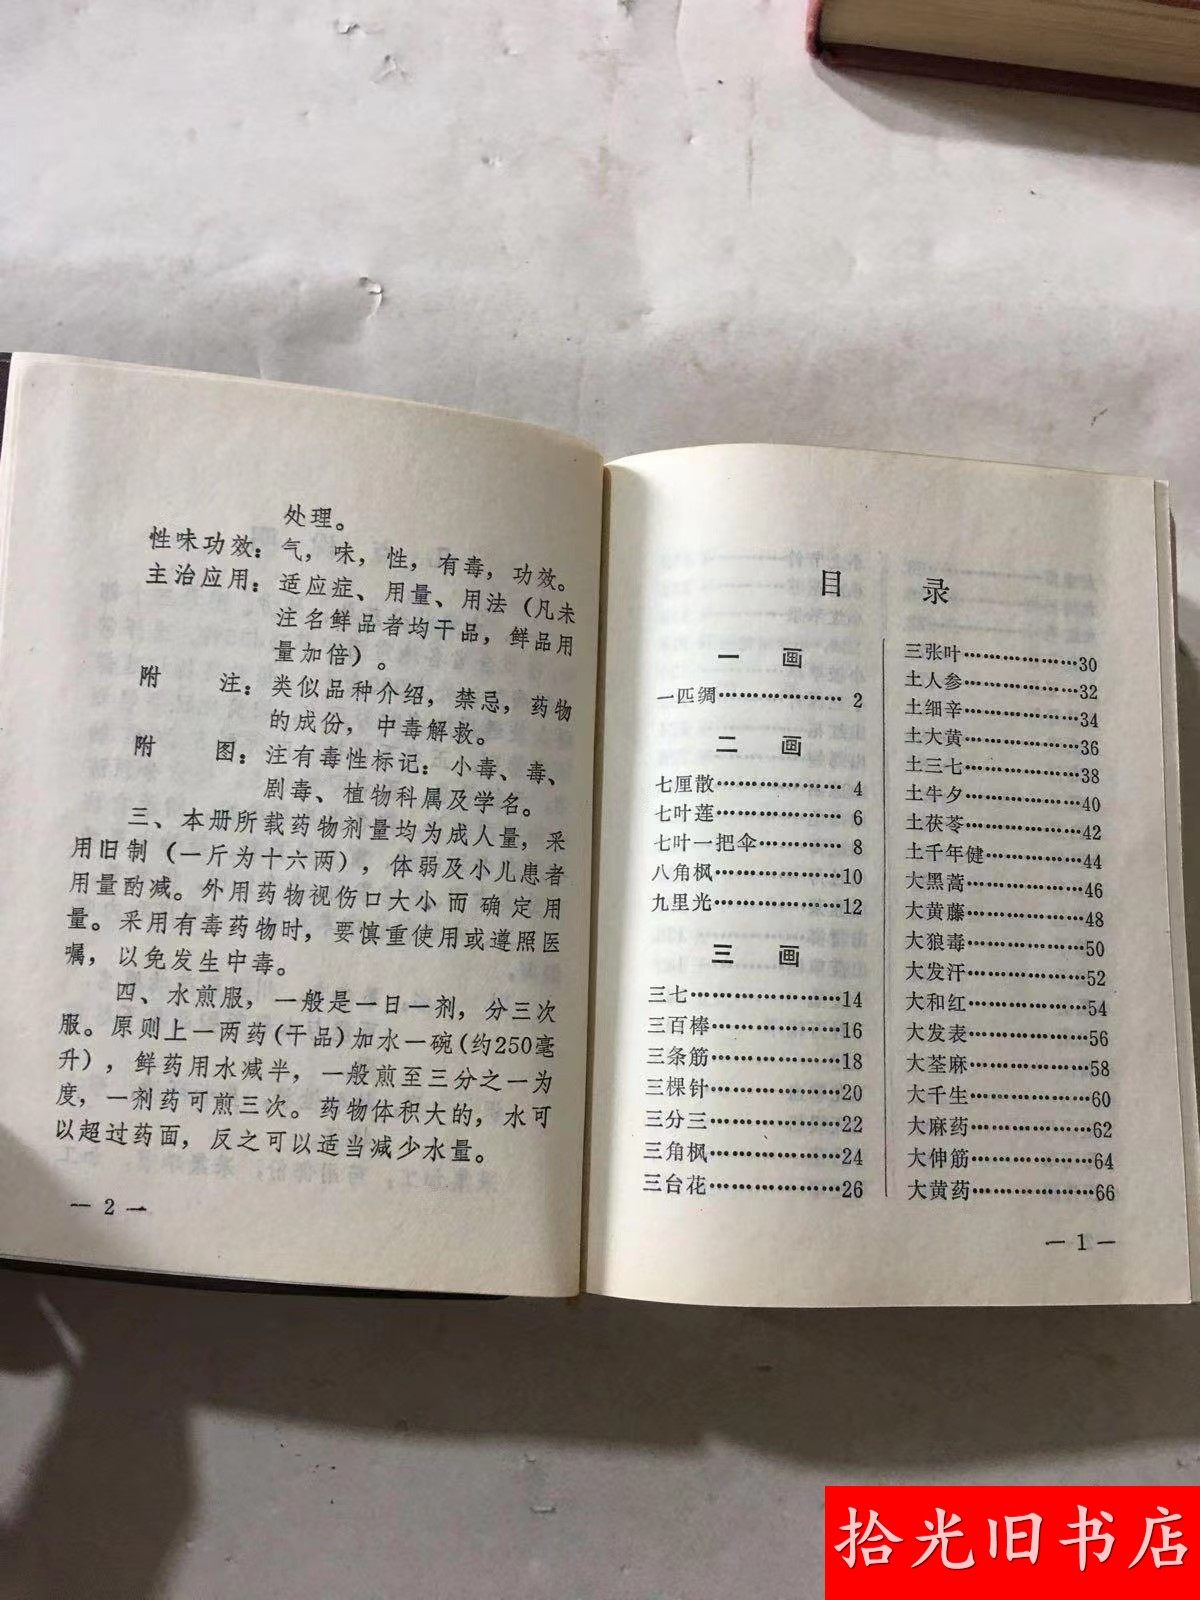 处理。
性味功效：气，味，性，有毒，功效。
主治应用：适应症、用量、用法（凡未
注名鲜品者均干品，鲜品用
量加倍）。
附　注：类似品种介绍，禁忌，药物
的成份，中毒解救。
附　图：注有毒性标记：小毒、毒、
剧毒、植物科属及学名。
三、本册所载药物剂量均为成人量，采
用旧制（一斤为十六两），体弱及小儿患者
用量酌减。外用药物视伤口大小而确定用
量。采用有毒药物时，要慎重使用或遵照医
嘱，以免发生中毒。
四、水煎服，一般是一日一剂，分三次
服。原则上一两药（干品）加水一碗（约250毫
升），鲜药用水减半，一般煎至三分之一为
度，一剂药可煎三次。药物体积大的，水可
以超过药面，反之可以适当减少水量。
— 2 —
目　录
一　画
一匹绸………………2
二　画
七厘散………………4
七叶莲………………6
七叶一把伞…………8
八角枫………………10
九里光………………12
三　画
三七…………………14
三百棒………………16
三条筋………………18
三棵针………………20
三分三………………22
三角枫………………24
三台花………………26
三张叶………………30
土人参………………32
土细辛………………34
土大黄………………36
土三七………………38
土牛夕………………40
土茯苓………………42
土千年健……………44
大黑蒿………………46
大黄藤………………48
大狼毒………………50
大发汗………………52
大和红………………54
大发表………………56
大荃麻………………58
大千生………………60
大麻药………………62
大伸筋………………64
大黄药………………66
— 1 —
拾光旧书店